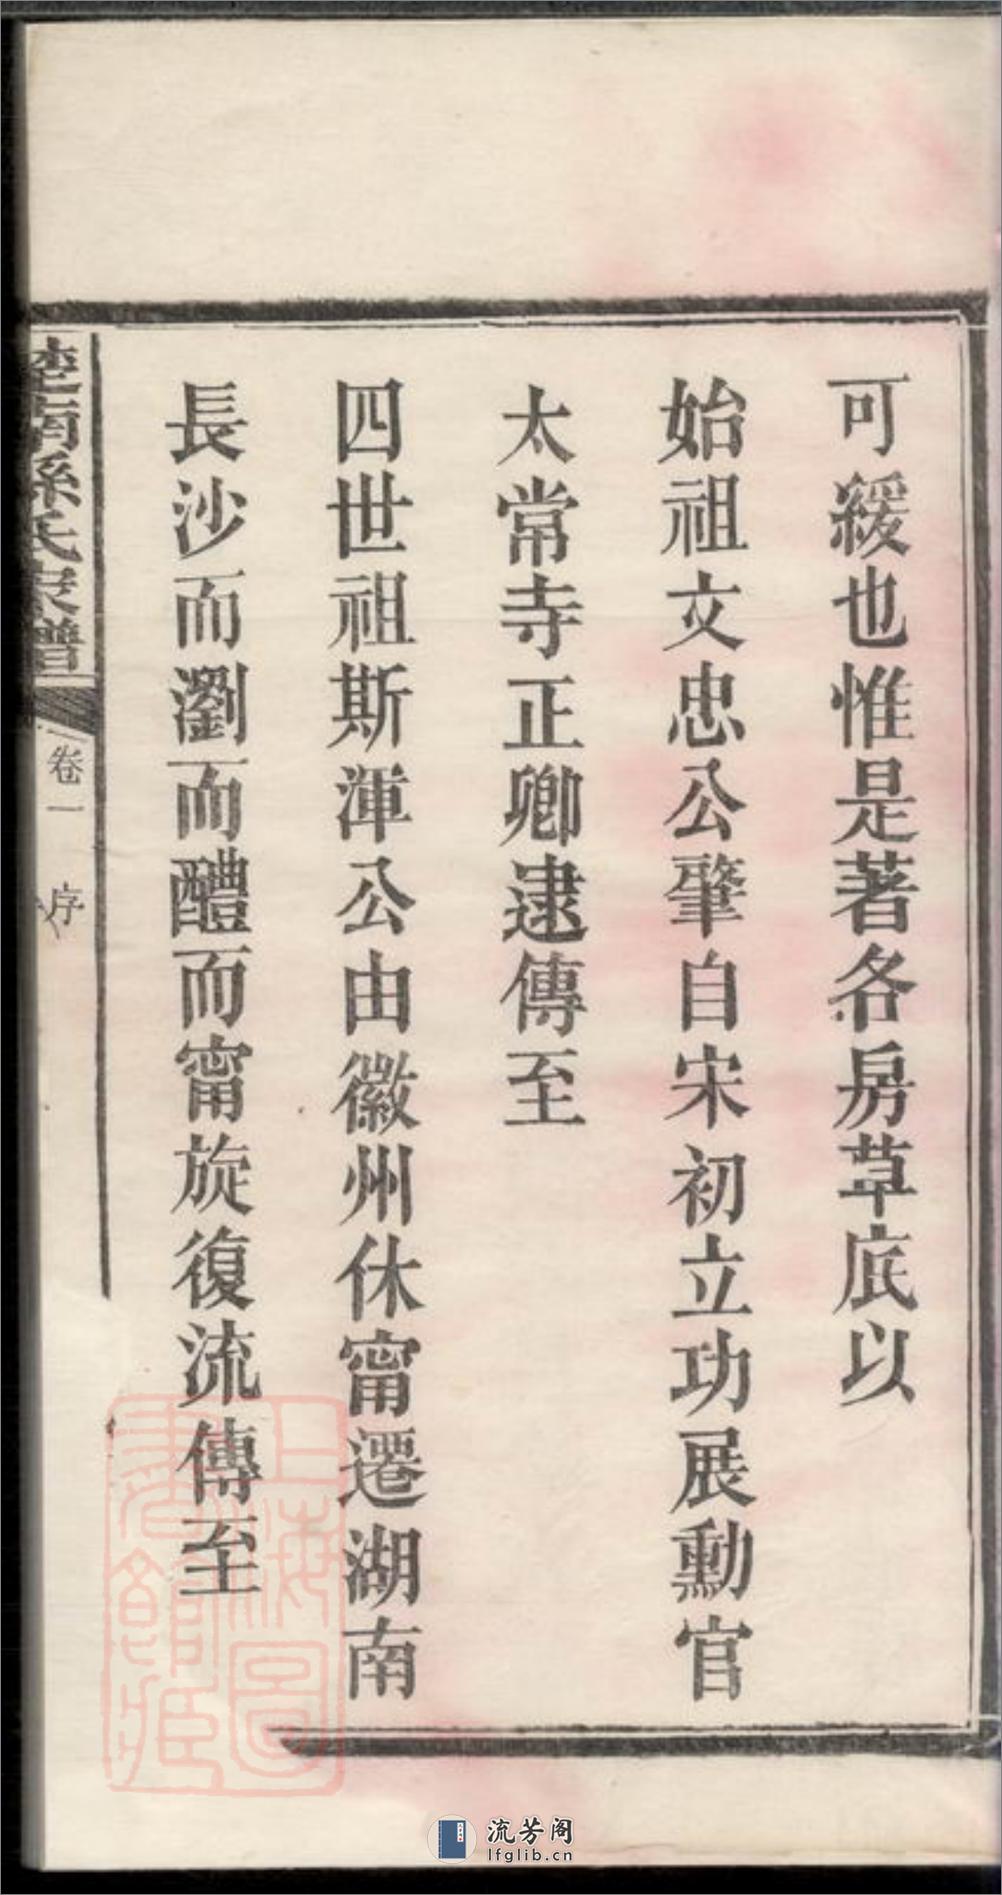 可緩也惟是著各房草底以
始祖文忠公肇自宋初立功展勳官
太常寺正卿逮傳至
四世祖斯渾公由徽州休甯遷湖南
長沙而瀏而醴而甯旋復流傳至
楚南孫氏家譜
卷一 序
上海圖書館藏
流芳阁
lfglib.cn